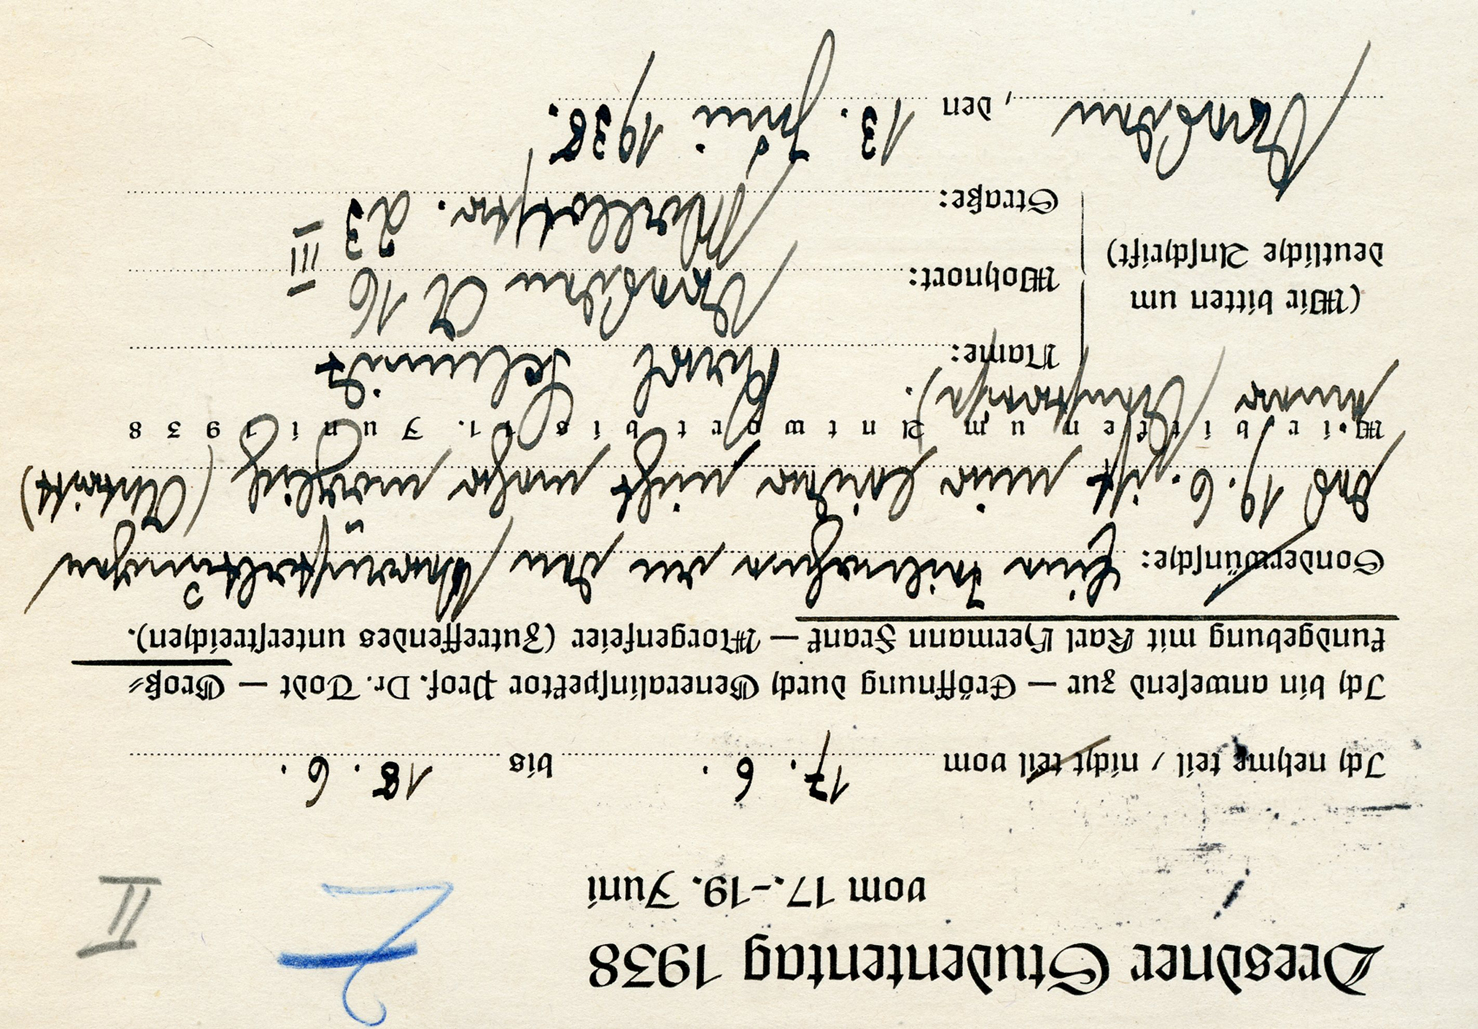 Dresdner Studententag 1938
vom 17.-19. Juni
II
Ich nehme teil / nicht teil vom 17. 6. bis 18. 6.
Ich bin anwesend zur — Eröffnung durch Generalinspektor Prof. Dr. Todt — Groß-
kundgebung mit Karl Hermann Frank — Morgenfeier (Zutreffendes unterstreichen).
Sonderwünsche: Eine Teilnahme an den Veranstaltungen
des 19. 6. ist mir leider nicht mehr möglich (Antritt
Wir bitten um Antwort bis 11. Juni 1938
meiner
(Wir bitten um
deutliche Anschrift)
Name: Karl
Wohnort: Dresden A 16
Straße: 23 III
Dresden, den 13. Juni 1938.